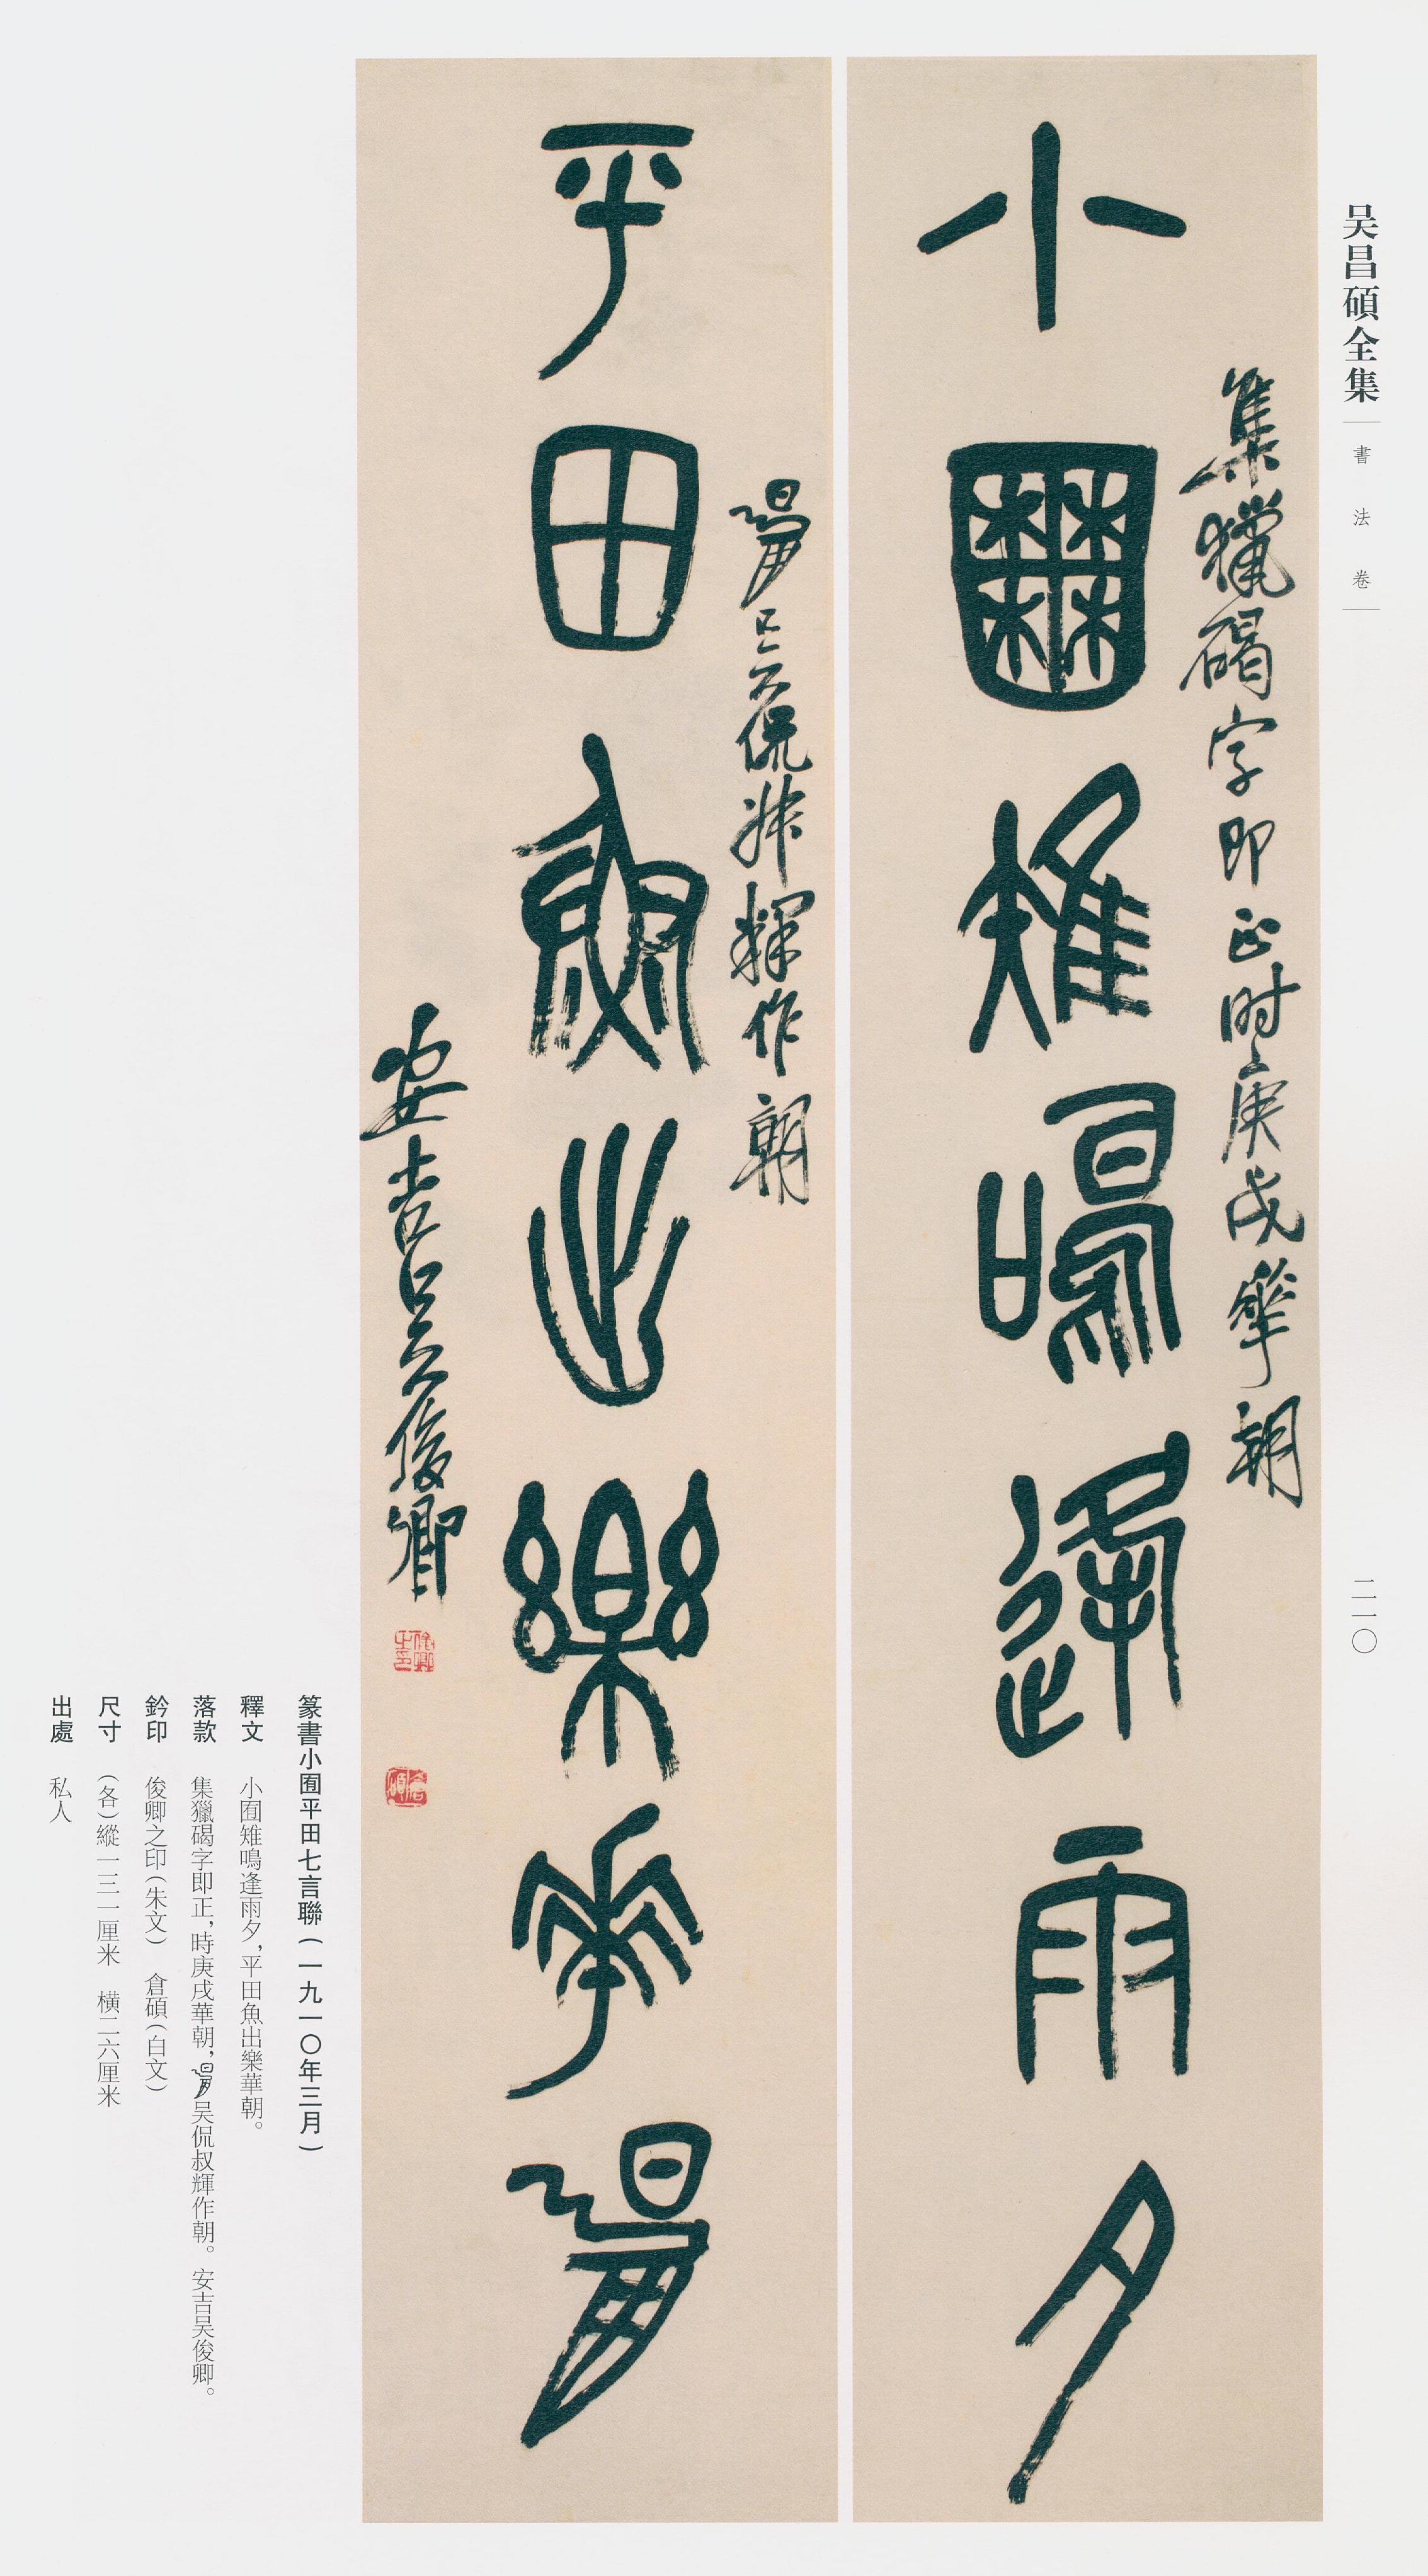 吴昌碩全集
書法卷
二一〇
小囿雉鳴逢雨夕
集獵碣字即正时庚戌華朝
平田魚出樂華朝
吴侃叔釋作朝
安吉吴俊卿
俊卿之印
倉碩
篆書小囿平田七言聯(一九一〇年三月)
釋文 小囿雉鳴逢雨夕,平田魚出樂華朝。
落款 集獵碣字即正,時庚戌華朝,吴侃叔輝作朝。安吉吴俊卿。
鈐印 俊卿之印(朱文) 倉碩(白文)
尺寸 (各)縱一三一厘米 橫二六厘米
出處 私人